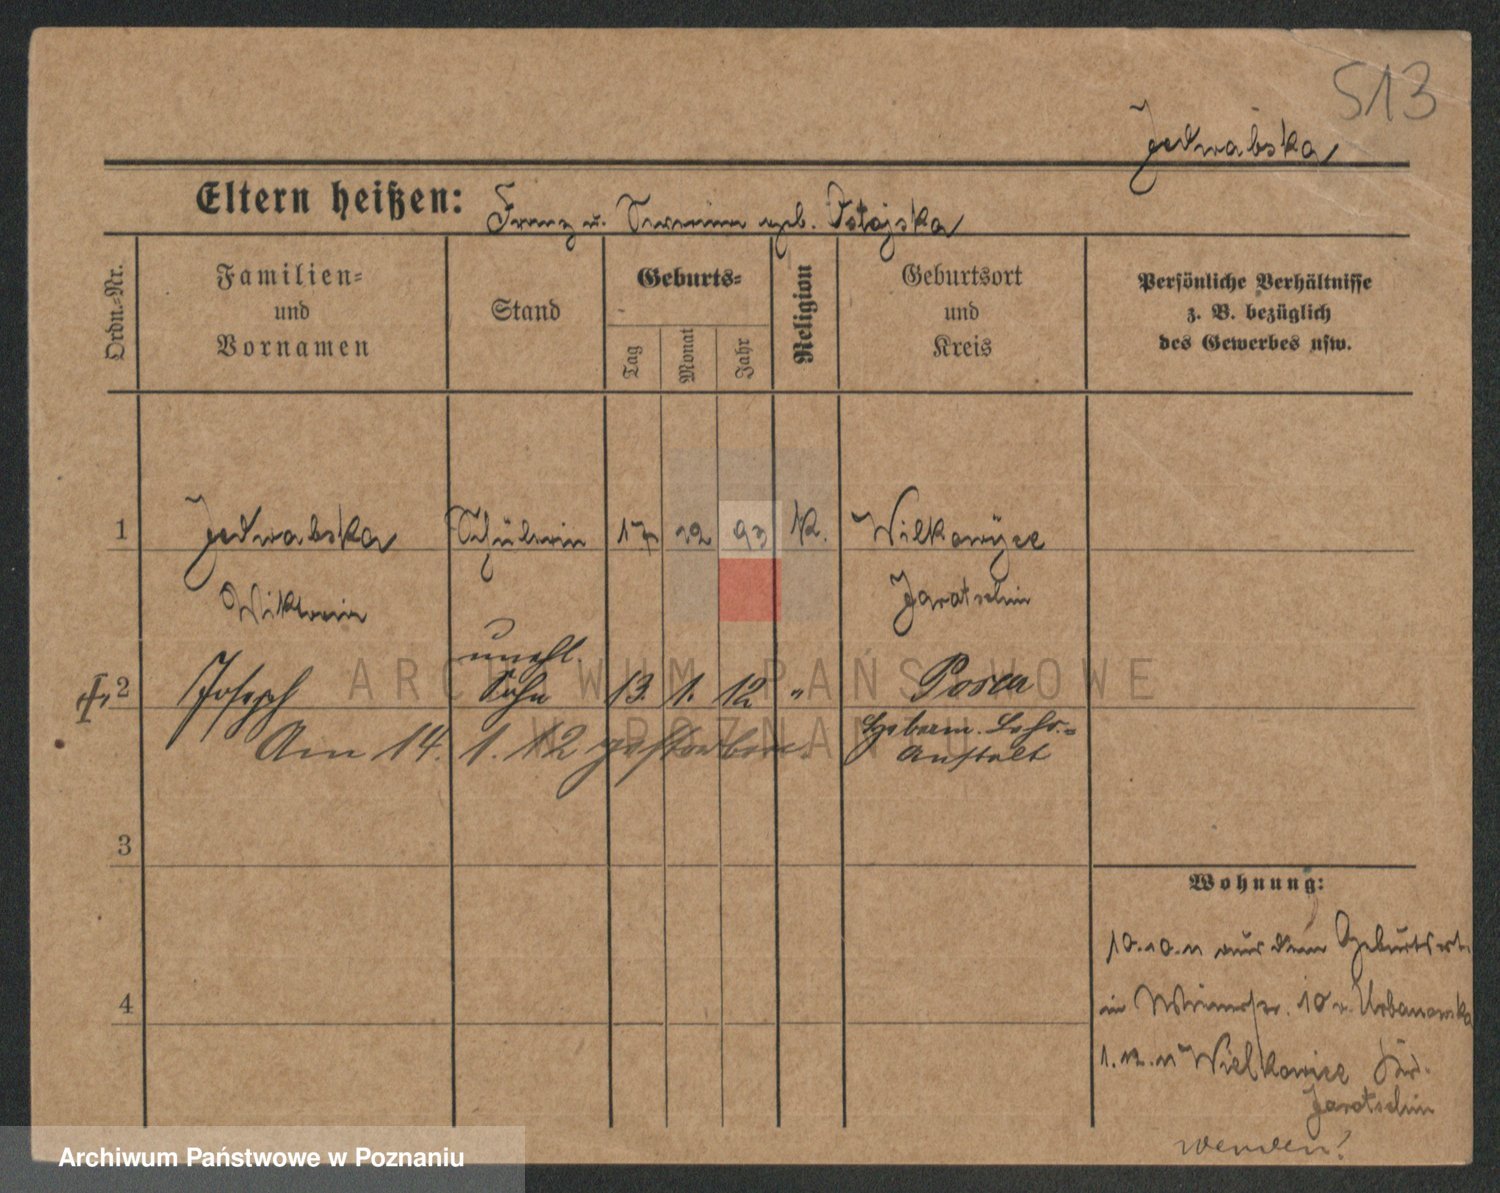 513
Jedwabska
Eltern heißen: Franz u. geb.
Ordn.=Nr.
Familien=
und
Vornamen
Stand
Geburts=
Tag
Monat
Jahr
Religion
Geburtsort
und
Kreis
Persönliche Verhältnisse
z. B. bezüglich
des Gewerbes usw.
1 Jedwabska Schülerin 17 12 93 K. Wilkowÿce
Jarotschin
unehl.
2 Joseph Sohn 13. 1. 12 " Posen
Am 14. 1. 12 gestorben. Hebam. Lehr.=
Anstalt
3
Wohnung:
10.10.11 aus dem Geburtsort
4
in 10 b. Urbanowska
1.12.11 Wielkowice Kr.
Jarotschin
wenden!
ARCHIWUM PAŃSTWOWE
W POZNANIU
Archiwum Państwowe w Poznaniu